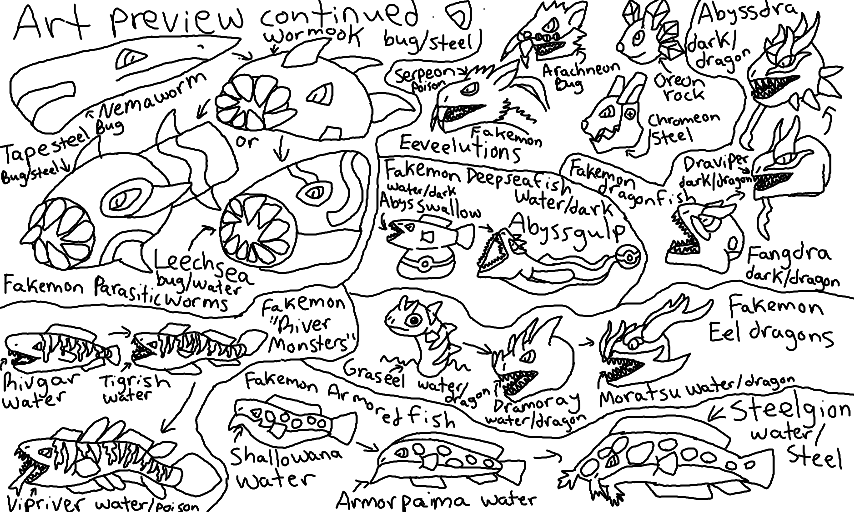 Art preview continued
Wormook bug/steel
Nemaworm
Bug
Tapesteel
Bug/steel
or
Leechsea
bug/water
Fakemon Parasitic Worms
Serpeon
Poison
Arachneon
Bug
Oreon
rock
Chromeon
Steel
Fakemon
Eeveelutions
Abyssdra
dark/
dragon
Draviper
dark/dragon
Fangdra
dark/dragon
Fakemon
dragonfish
Fakemon Deepseafish
water/dark
Abysswallow
water/dark
Abyssgulp
Fakemon
"River
Monsters"
Rivgar
water
Tigrish
water
Vipriver water/poison
Graseel water/
dragon
Dramoray
water/dragon
Moratsu water/dragon
Fakemon
Eel dragons
Fakemon Armored fish
Shallowana
Water
Armorpaima water
Steelgion
water/
Steel